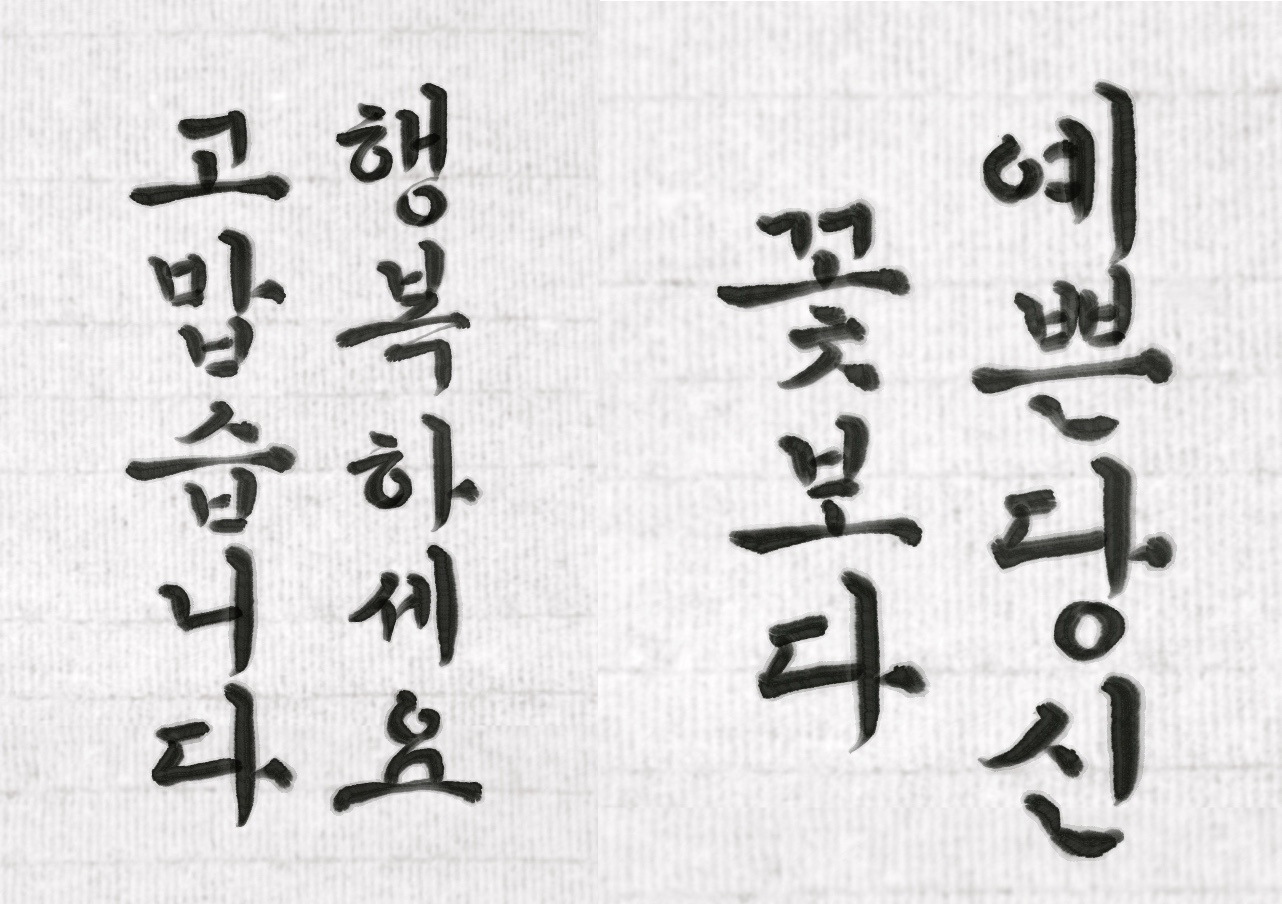 고맙습니다
행복하세요
꽃보다
예쁜당신